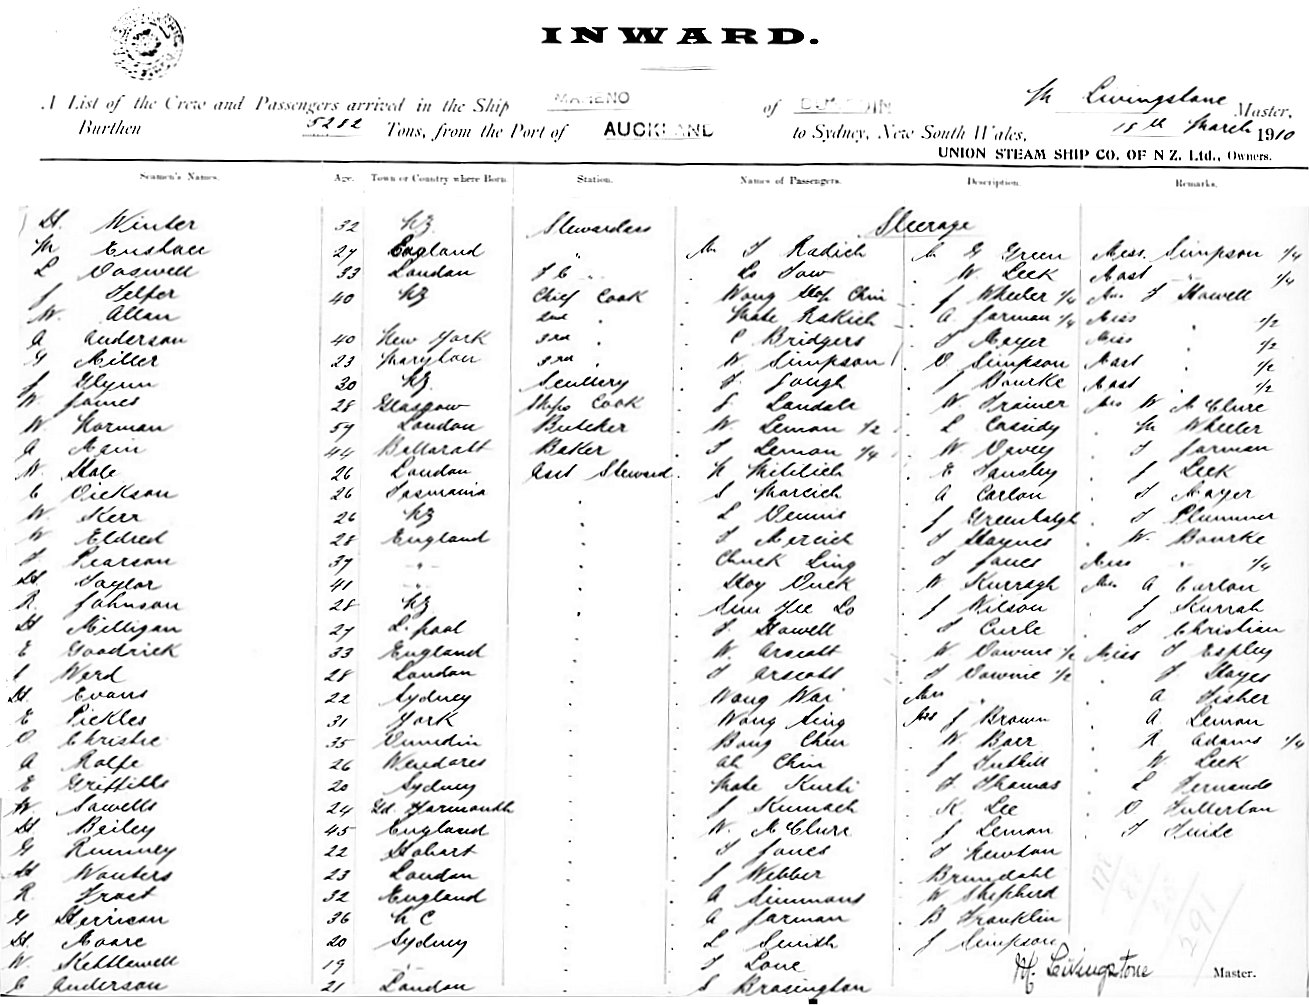 INWARD.
A List of the Crew and Passengers arrived in the Ship MARENO of DUNEDIN M Livingstone Master,
Burthen 5282 Tons, from the Port of AUCKLAND to Sydney, New South Wales, 18th March 1910
UNION STEAM SHIP CO. OF N Z. Ltd., Owners.
Seamen's Names. Age. Town or Country where Born. Station. Names of Passengers. Description. Remarks.
H. Winter 32 NZ Stewardess Steerage
M 27 England " Mr T Radich Mr G Green Miss Simpson 1/4
L 33 London W. Leek Mast " 1/4
J Telfer 40 NZ Chief Cook Wong Hop Chin J Wheeler 1/4 Mrs T Howell
W. Allan 2nd " Mate Rakich A. Jarman 1/4 Miss " 1/2
A Anderson 40 New York 3rd " C Bridgers T Mayer Miss " 1/2
G Miller 23 3rd " W Simpson O Simpson Mast " 1/2
J Glynn 30 NZ Scullery T. Gough J Bourke Mast " 1/2
W James 28 Glasgow Ships Cook S Landale W Trainer Mrs W McClure
W Norman 59 London Butcher W. Lemon 1/2 L Cassidy M Wheeler
A Main 44 Ballaratt Baker T Lemon 1/4 W. Davey T Jarman
W Hale 26 London Asst Steward N E Tansley J Leek
C Dickson 26 Tasmania " S A Carlon T Mayer
W. Kerr 26 NZ " L Dennis J Greenhalgh T Plummer
W Eldred 28 England " T T Haynes W. Bourke
T Pearson 39 " " Chuck Ling T Jones Miss " 1/4
H Taylor 41 " " Hoy Duck W Kurragh Mrs A Carlon
R. Johnson 28 NZ " Sun Yee Lo J Wilson J Kurrah
H Milligan 27 L.pool " T. Howell T Curle T Christian
E Goodrick 33 England " W. Arscott W Downie 1/2 Miss T Espley
S Ward 28 London " T Arscott T Downie 1/2 T Hayes
H Evans 22 Sydney " Wong Wai Mrs " A Fisher
E Pickles 31 York " Wong Sing Mrs J Brown A Lemon
O Christie 35 Dunedin " Bong Chin W. Barr R Adams 1/4
A Rolfe 26 " Ah Chin J Tuthill W Leek
E Griffiths 20 Sydney " Mate Kurti T. Thomas L Fernando
W Sawells 24 Gt. Yarmouth " J K. Lee O Fullerton
H Beiley 45 England " W. McClure J Lemon T Tuite
G Rumney 22 Hobart " T Jones T Newton
H Wouters 23 London " J Webber Brundahl
R. Frost 32 England " A Simmons W Shepherd
G Herrison 36 N C " A Jarman B Franklin
H. Moore 20 Sydney " L Smith J Simpson
W. Kettlewell 19 " " T Lane M. Livingstone Master.
C Anderson 21 London " S Brasington